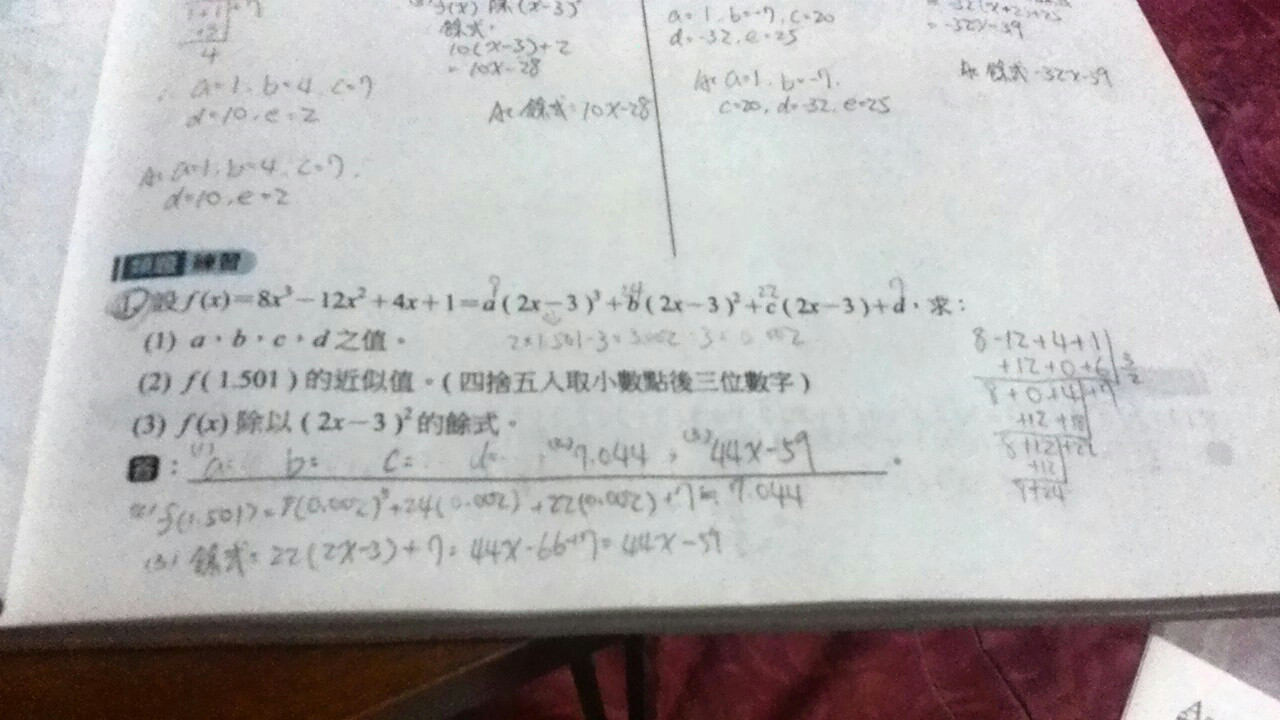 4
a=1, b=4, c=7
d=10, e=2
A: a=1, b=4, c=7,
d=10, e=2
f(x) 除 (x-3)²
餘式:
10(x-3)+2
=10x-28
A: 餘式=10x-28
a=1, b=-7, c=20
d=-32, e=25
A: a=1, b=-7,
c=20, d=-32, e=25
-32(x+2)+25
=-32x-39
A: 餘式-32x-39
類題 練習
1. 設 f(x)=8x³-12x²+4x+1=a(2x-3)³+b(2x-3)²+c(2x-3)+d,求:
(1) a、b、c、d 之值。
2×1.501-3=3.002-3=0.002
(2) f(1.501)的近似值。(四捨五入取小數點後三位數字)
(3) f(x)除以(2x-3)²的餘式。
答:(1) a= b= c= d= ,(2) 7.044 ,(3) 44x-59 。
(2) f(1.501)=8(0.002)³+24(0.002)+22(0.002)+7≒7.044
(3) 餘式=22(2x-3)+7=44x-66+7=44x-59
8-12+4+1
+12+0+6
8+0+4+7
+12+18
8+12+22
+12
8+24